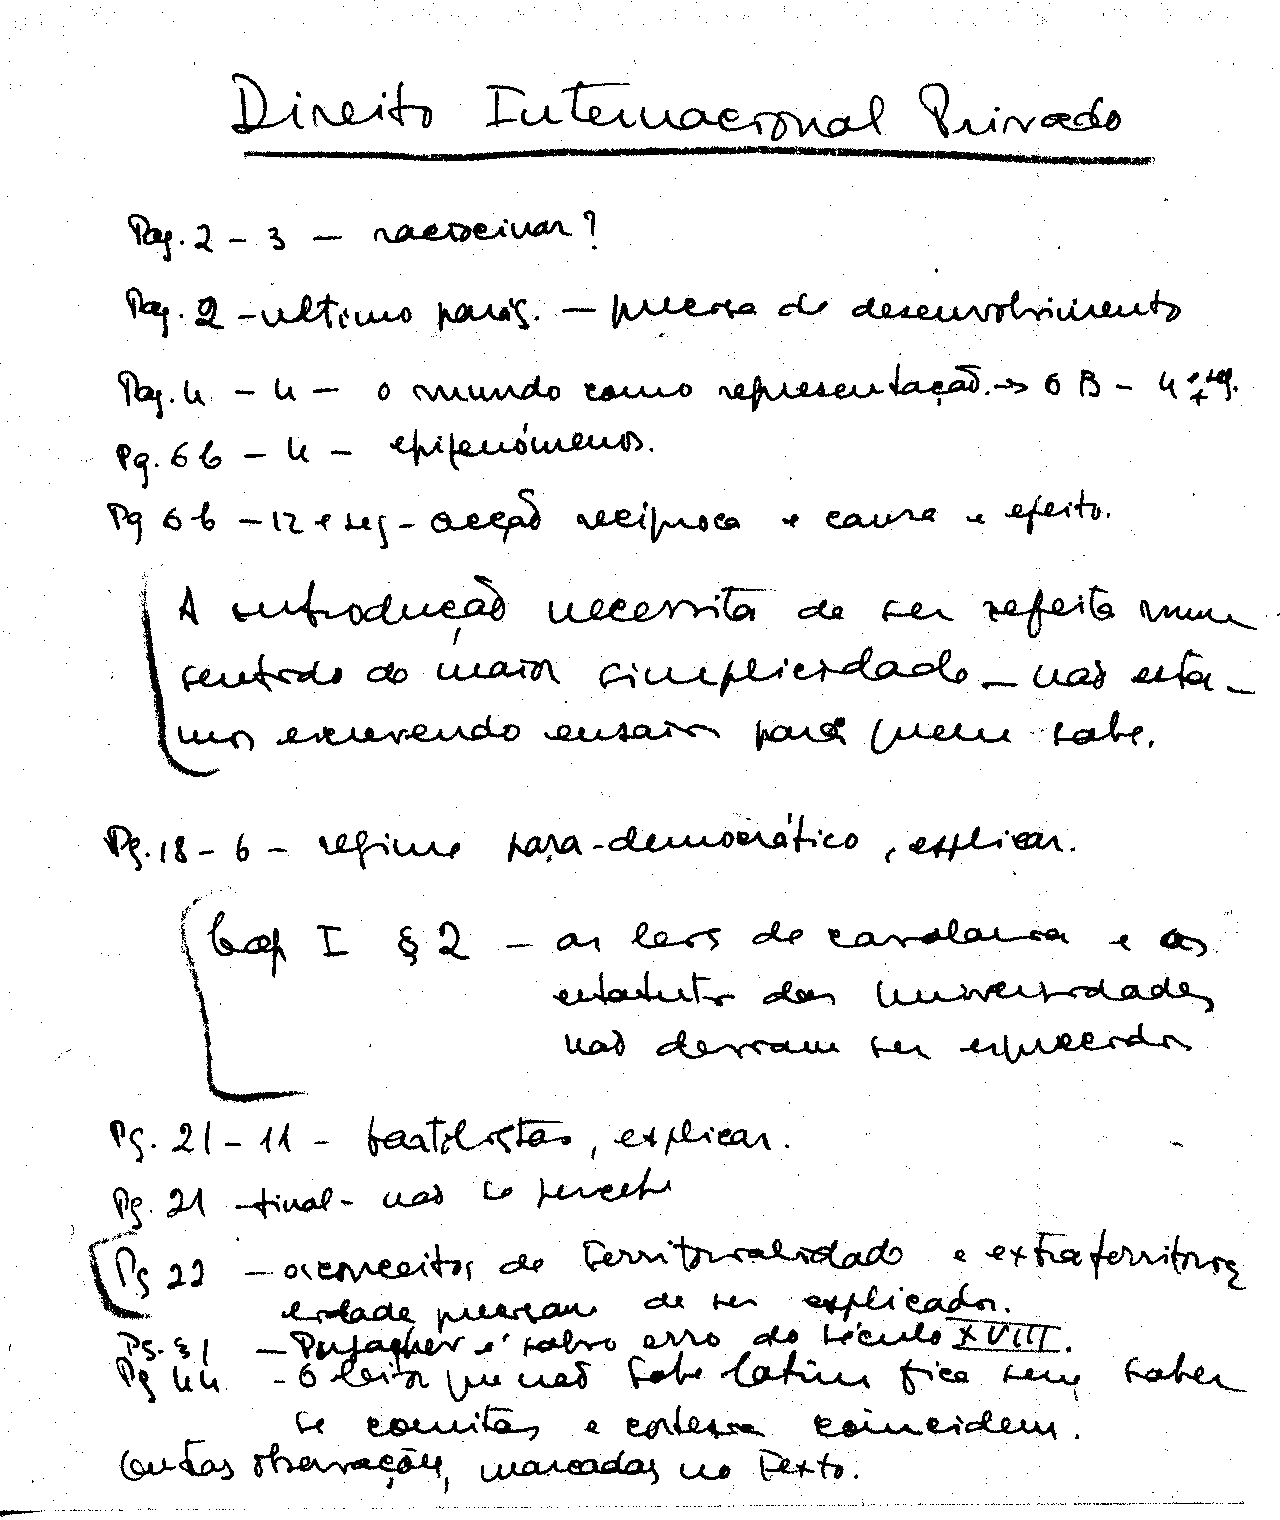 Direito Internacional Privado
Pag. 2 - 3 - raciocinar?
Pag. 2 - ultimo parág. - precisa de desenvolvimento
Pag. 4 - 4 - o mundo como representação. → 6 B - 4 e seg.
Pg. 6b - 4 - epifenómenos.
Pg 6b - 12 e seg - acção recíproca e causa e efeito.
A introdução necessita de ser refeita num
sentido de maior simplicidade - não esta-
mos escrevendo ensaios para quem sabe.
Pg. 18 - 6 - regime para-democrático, explicar.
Cap I § 2 - as leis de cavalaria e os
estatutos das Universidades
não deviam ser esquecidos
Pg. 21 - 11 - bartolistas, explicar.
Pg. 21 - final - não se percebe
Pg 22 - os conceitos de territorialidade e extraterritoria
lidade precisam de ser explicados.
Pg. 31 - é salvo erro do século XVIII.
Pg 44 - O leitor que não sabe latim fica sem saber
se comitas e cortesia coincidem.
Outras observações, marcadas no texto.